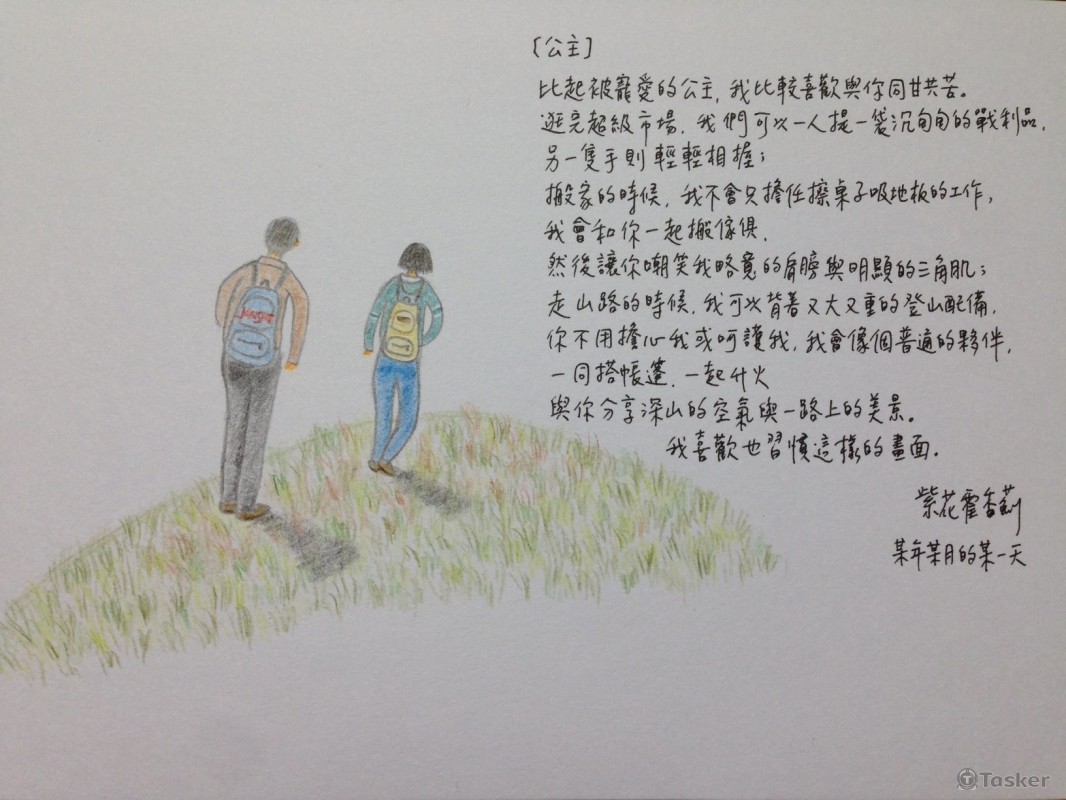 〔公主〕
比起被寵愛的公主，我比較喜歡與你同甘共苦。
逛完超級市場，我們可以一人提一袋沉甸甸的戰利品，
另一隻手則輕輕相握；
搬家的時候，我不會只擔任擦桌子吸地板的工作，
我會和你一起搬傢俱，
然後讓你嘲笑我略寬的肩膀與明顯的三角肌；
走山路的時候，我可以背著又大又重的登山配備，
你不用擔心我或呵護我，我會像個普通的夥伴，
一同搭帳篷，一起升火
與你分享深山的空氣與一路上的美景。
我喜歡也習慣這樣的畫面。
紫花霍香薊
某年某月的某一天
Tasker